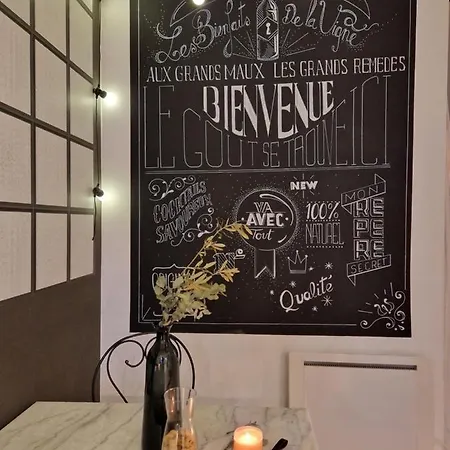 Les Bienfaits De la Vigne
AUX GRANDS MAUX LES GRANDS REMEDES
BIENVENUE
LE GOUT SE TROUVE ICI
COCKTAILS
SAVOUREUX
VA
AVEC
Tout
NEW
100%
NATUREL
MON
REPERE
SECRET
Qualité